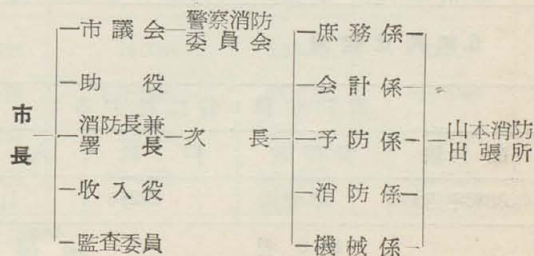 市長
市議会
警察消防
委員会
助役
消防長兼
署長
次長
収入役
監査委員
庶務係
会計係
予防係
消防係
機械係
山本消防
出張所